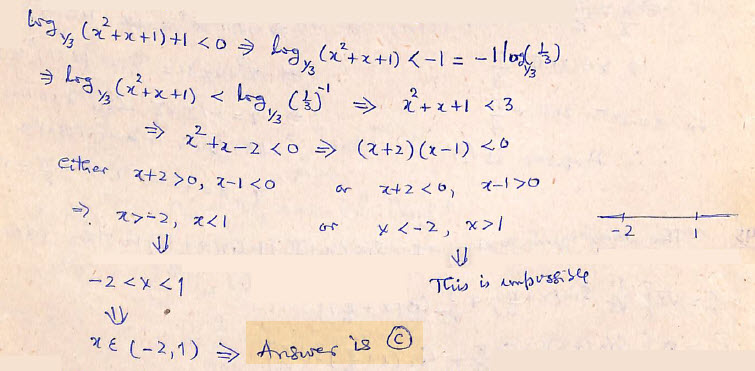 log_{1/3} (x²+x+1)+1 < 0 ⇒ log_{1/3} (x²+x+1) < -1 = -1 log_{1/3}(1/3)
⇒ log_{1/3} (x²+x+1) < log_{1/3} (1/3)^{-1} ⇒ x²+x+1 < 3
⇒ x²+x-2 < 0 ⇒ (x+2)(x-1) < 0
either x+2 > 0, x-1 < 0 or x+2 < 0, x-1 > 0
⇒ x > -2, x < 1 or x < -2, x > 1
-2 1
⇓ ⇓
-2 < x < 1 This is impossible
⇓
x ε (-2, 1) ⇒ Answer is Ⓒ